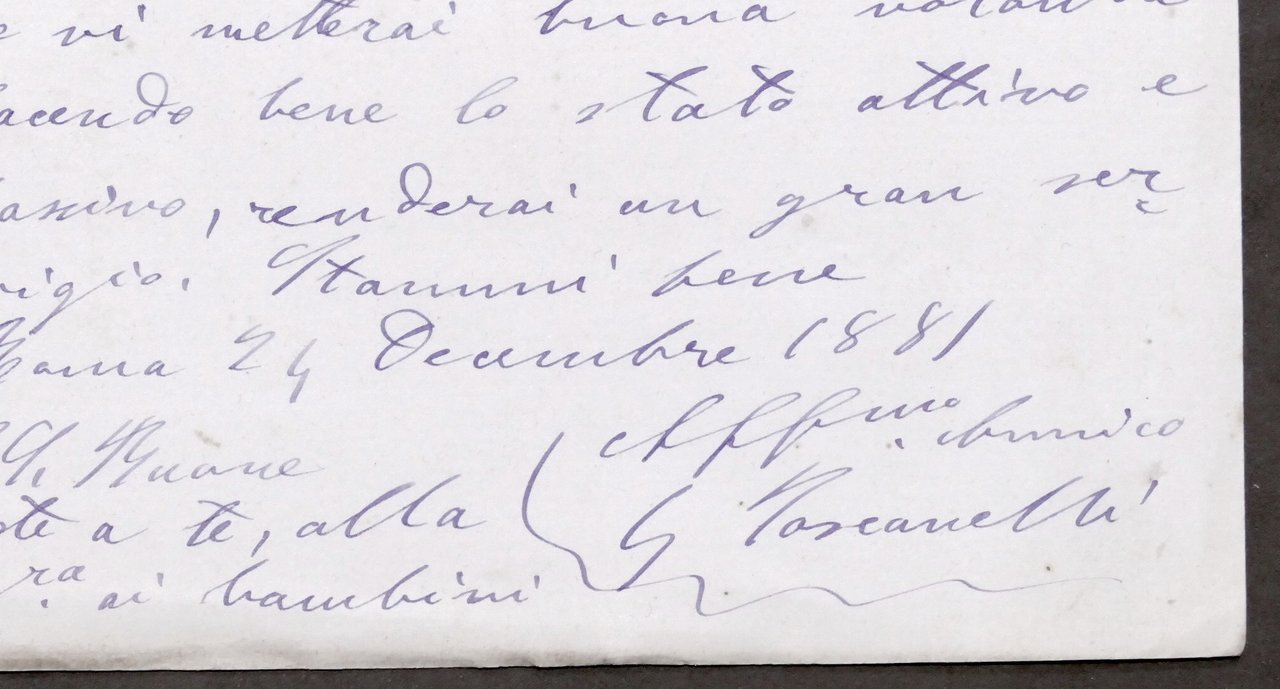 e vi metterai buona volontà
facendo bene lo stato attivo e
passivo, renderai un gran ser
vigio. Stammi bene
Roma 24 Decembre 1881
Affmo. Amico
Buone
ste a te, alla
G Toscanelli
ra ai bambini